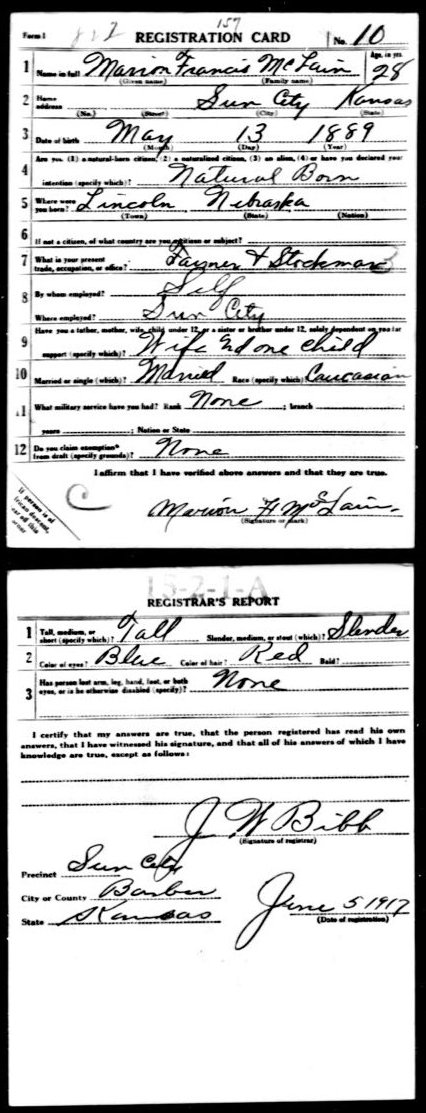 157
Form 1
REGISTRATION CARD No. 10
1 Name in full Marion Francis McLain Age, in yrs. 28
(Given name) (Family name)
2 Home address Sun City Kansas
(No.) (Street) (City) (State)
3 Date of birth May 13 1889
(Month) (Day) (Year)
Are you (1) a natural-born citizen, (2) a naturalized citizen, (3) an alien, (4) or have you declared your
4 intention (specify which)? Natural Born
5 Where were you born? Lincoln Nebraska
(Town) (State) (Nation)
6 If not a citizen, of what country are you a citizen or subject?
7 What is your present trade, occupation, or office? Farmer & Stockman
8 By whom employed? Self
Where employed? Sun City
Have you a father, mother, wife, child under 12, or a sister or brother under 12, solely dependent on you for
9 support (specify which)? Wife and one child
10 Married or single (which)? Married Race (specify which)? Caucasian
11 What military service have you had? Rank None ; branch ;
years ; Nation or State
12 Do you claim exemption from draft (specify grounds)? None
I affirm that I have verified above answers and that they are true.
C
If person is of
African descent,
tear off this
corner
Marion F McLain
(Signature or mark)
15-2-1-A
REGISTRAR'S REPORT
1 Tall, medium, or short (specify which)? Tall Slender, medium, or stout (which)? Slender
2 Color of eyes? Blue Color of hair? Red Bald?
3 Has person lost arm, leg, hand, foot, or both eyes, or is he otherwise disabled (specify)? None
I certify that my answers are true, that the person registered has read his own
answers, that I have witnessed his signature, and that all of his answers of which I have
knowledge are true, except as follows:
J W Bibb
(Signature of registrar)
Precinct Sun City
City or County Barber
State Kansas
June 5 1917
(Date of registration)